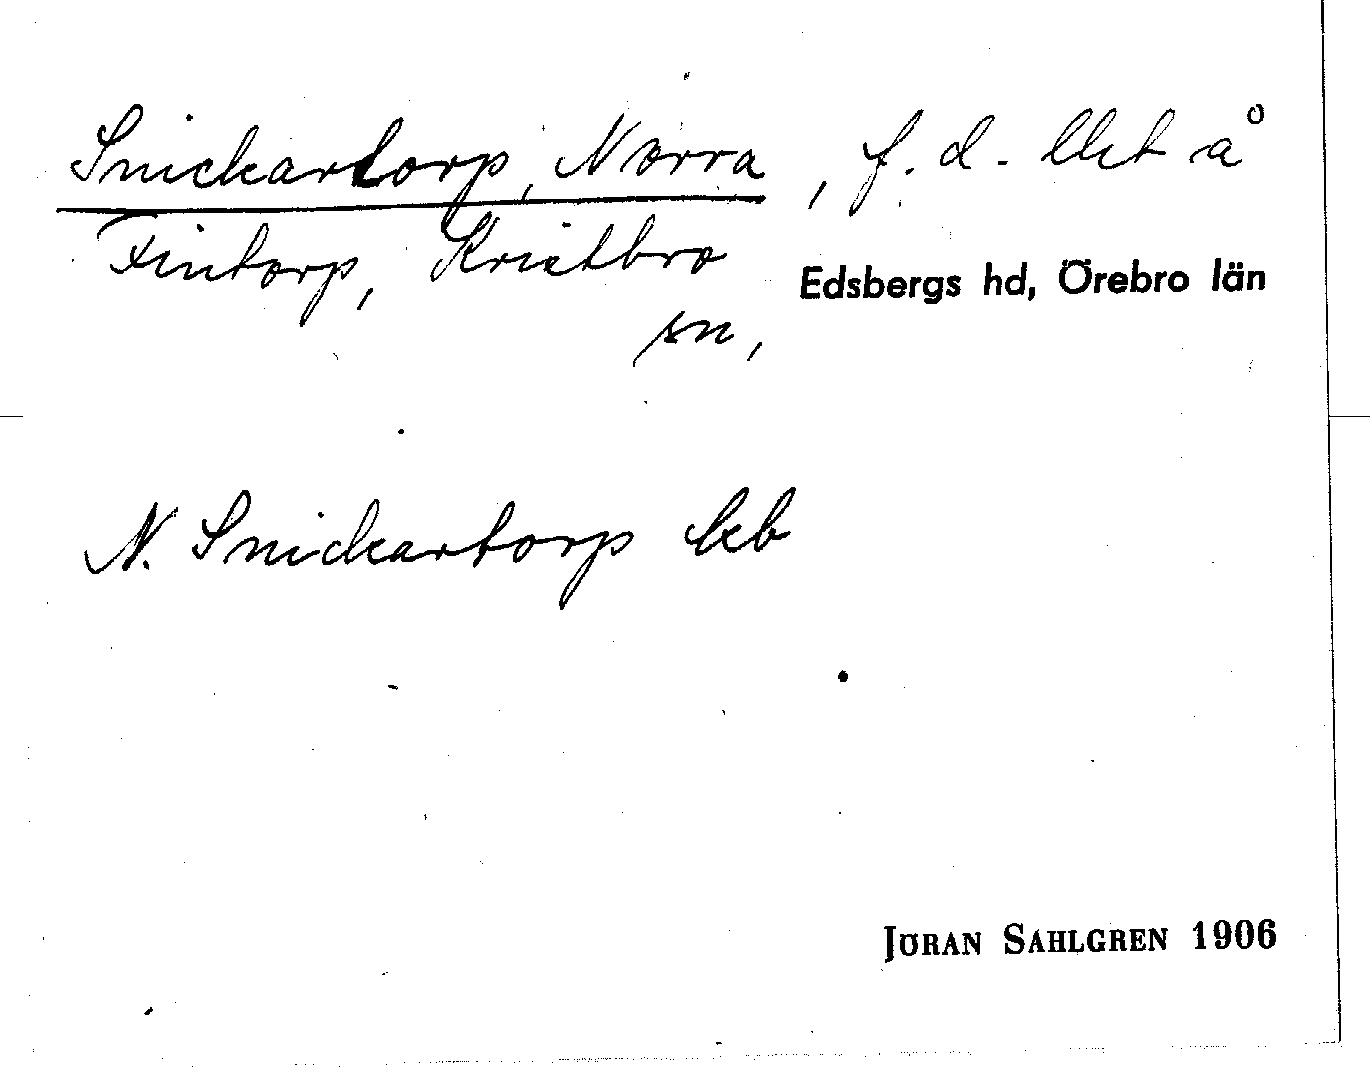 Snickartorp, Norra, f.d. lht å
Fintorp, Kvistbro
sn,
Edsbergs hd, Örebro län
N. Snickartorp leb
JÖRAN SAHLGREN 1906